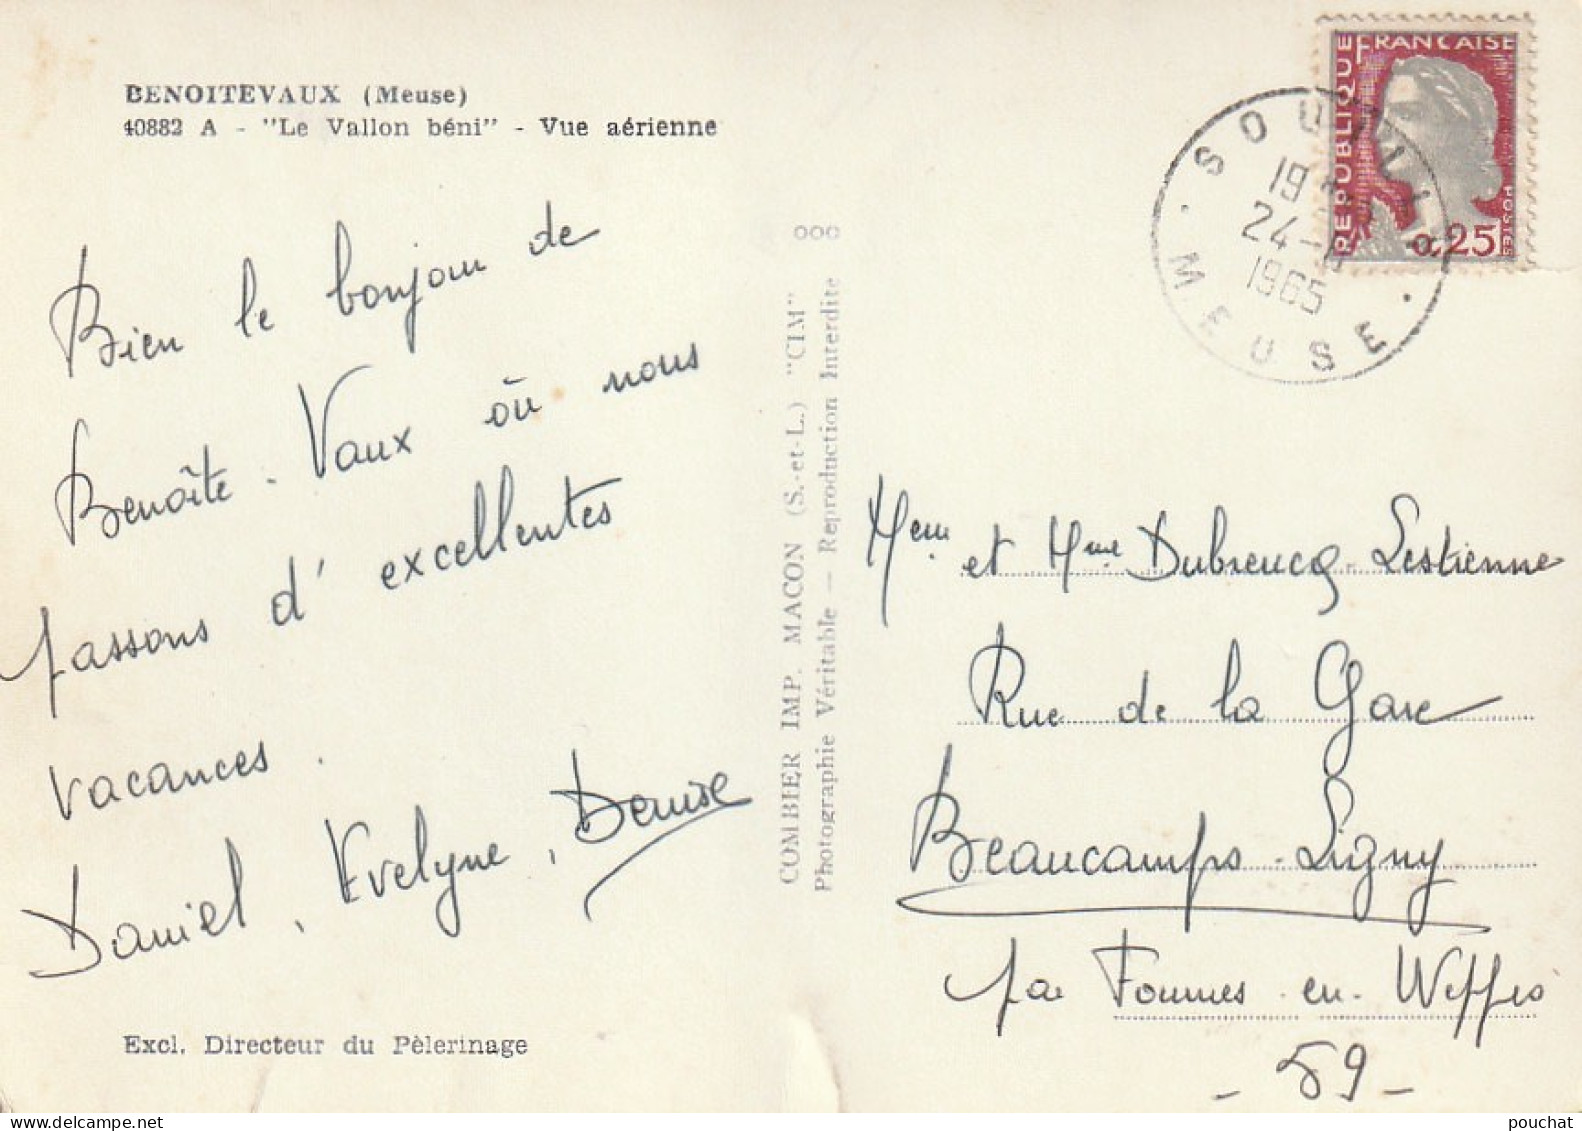 BENOITEVAUX (Meuse)
40882 A - "Le Vallon béni" - Vue aérienne
Bien le bonjour de
Benoîte-Vaux où nous
passons d'excellentes
vacances.
Daniel, Evelyne, Denise
Excl. Directeur du Pèlerinage
COMBIER IMP. MACON (S.-et-L.) "CIM"
Photographie Véritable — Reproduction Interdite
REPUBLIQUE FRANCAISE
0,25
POSTES
19
24-
1965
MEUSE
et Mme Dubreucq-Lestienne
Rue de la Gare
Beaucamps-Ligny
par Fournes-en-Weppes
- 59 -
pouchat